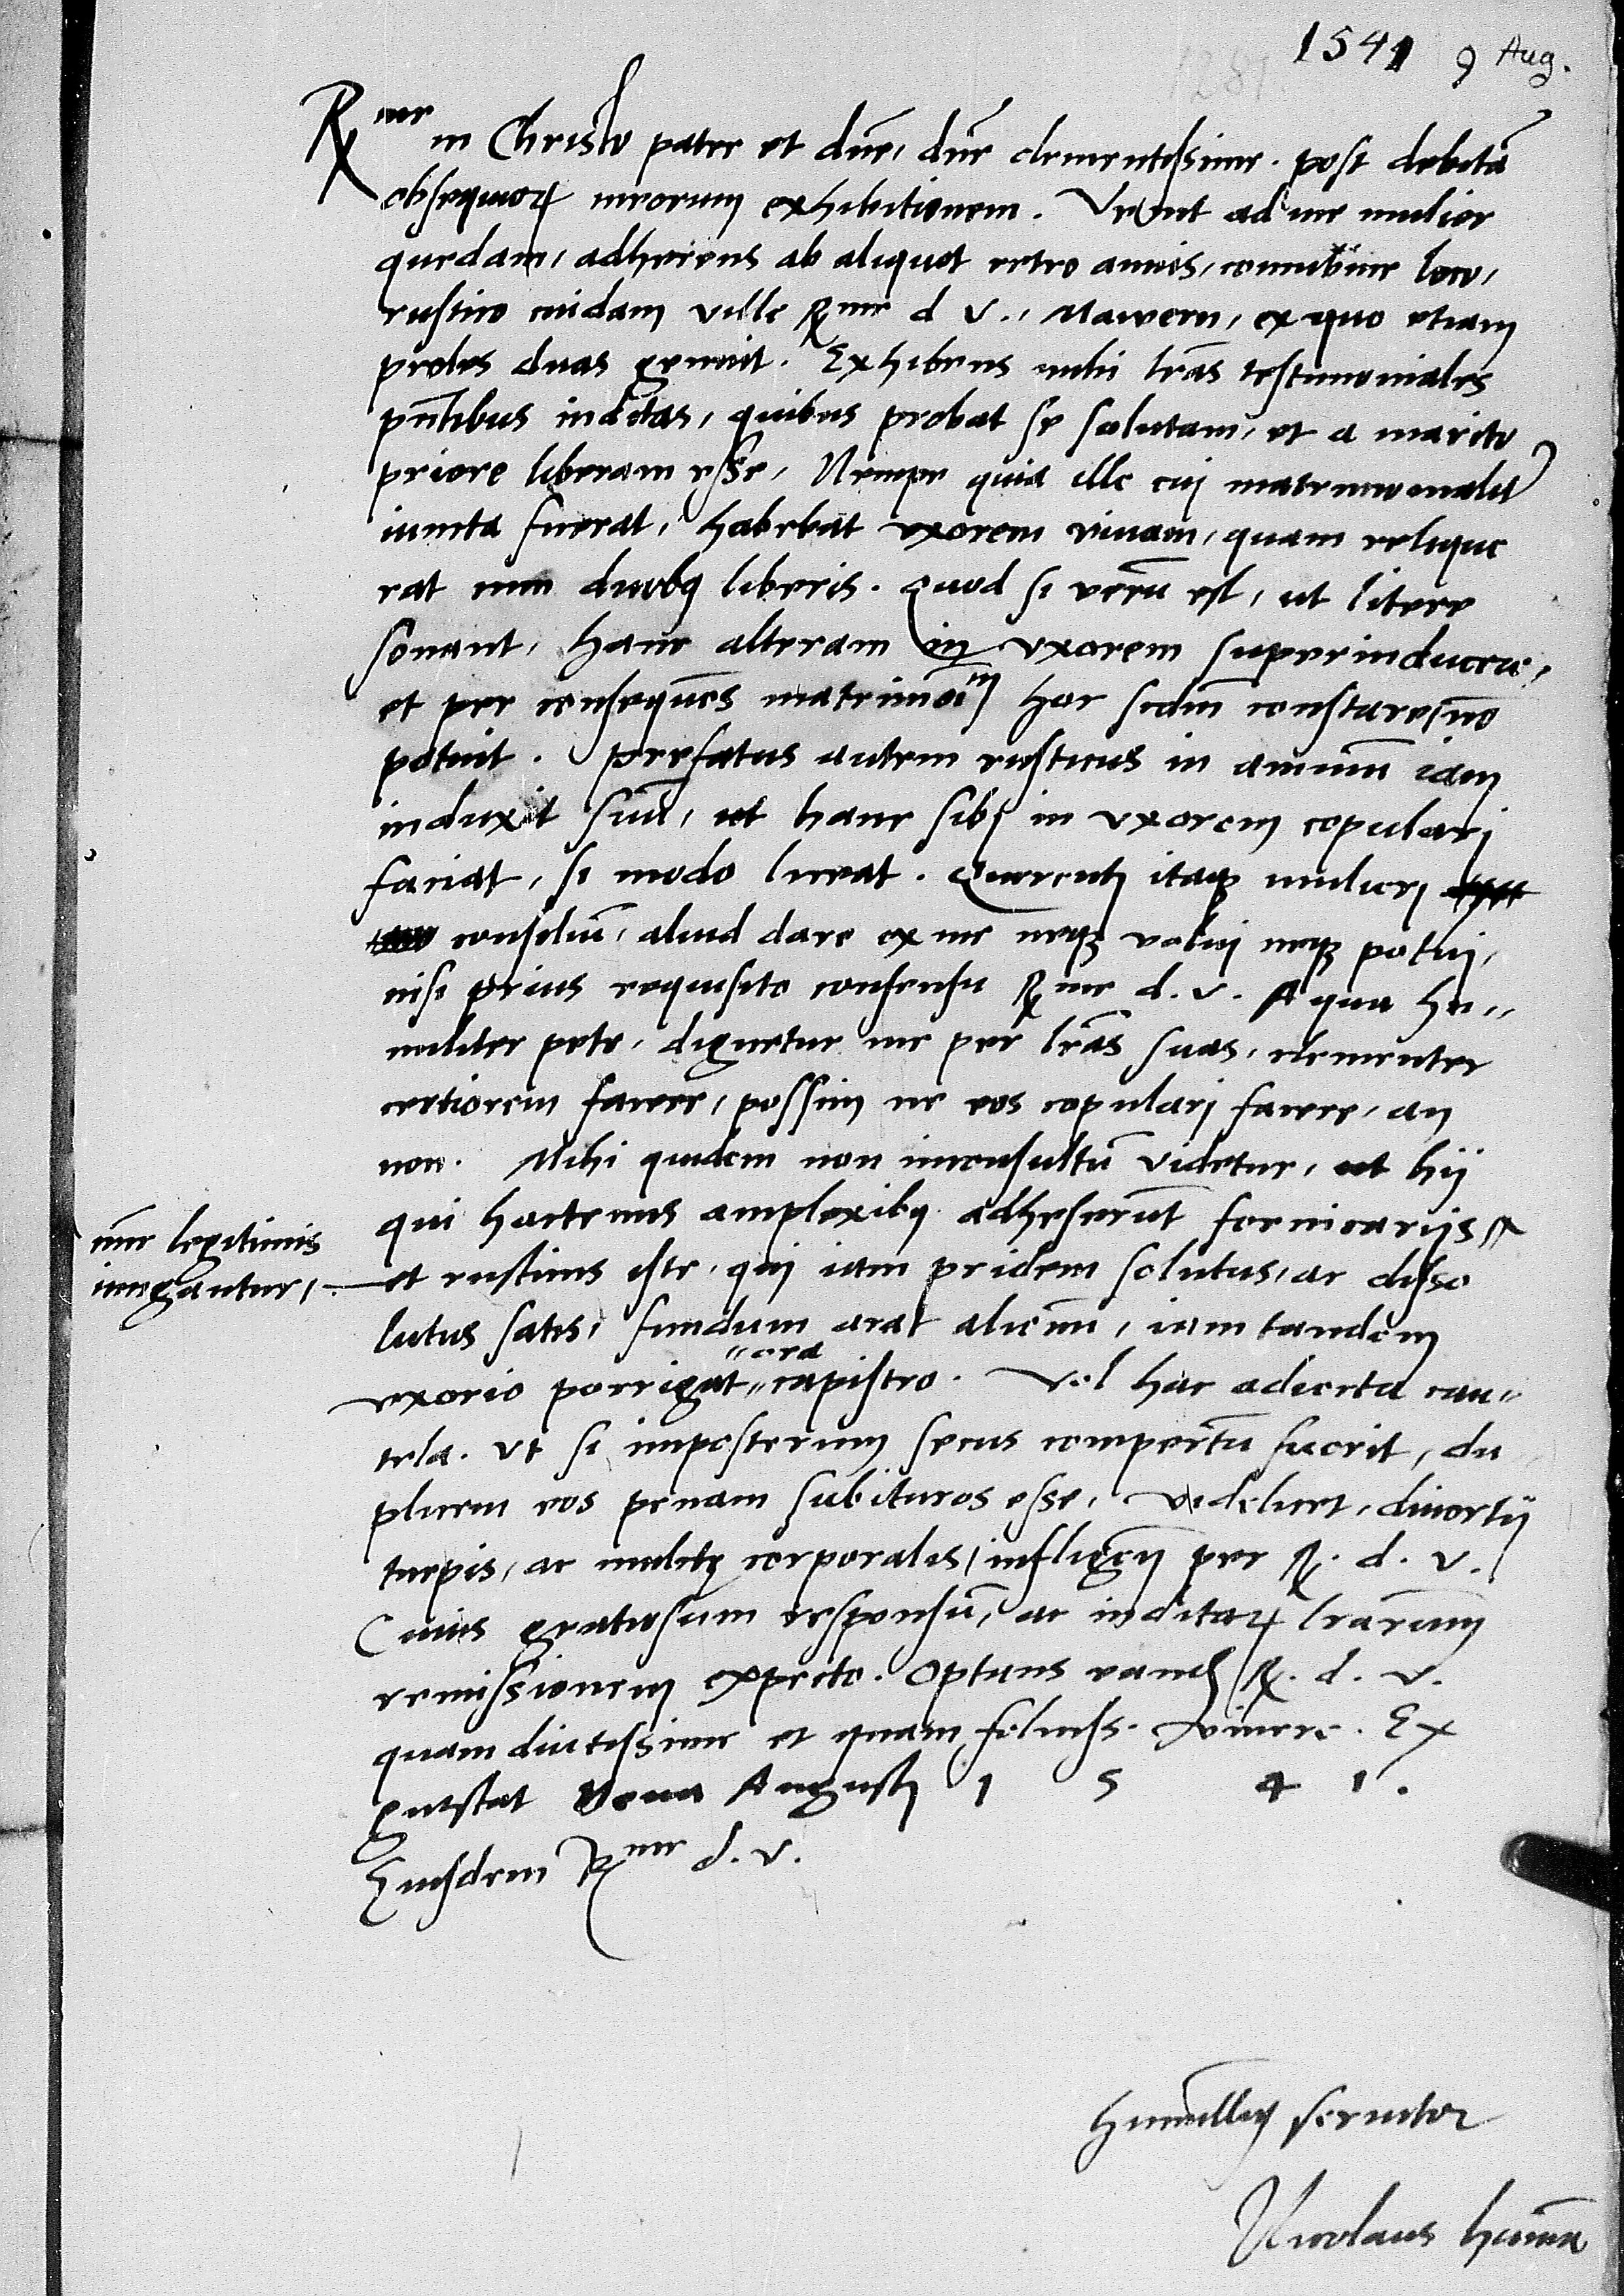 1541 9 Aug.
R me in Christo pater et dne, dne clementissime. post debitā
obsequiorꝝ meorum exhibitionem. Venit ad me mulier
quedam, adherens ab aliquot retro annis, concubine loco,
rustico cuidam ville R me d v., Mawern, ex quo etiam
proles duas genuit. Exhibens mihi lrās testimoniales
pntibus inditas, quibus probat se solutam, et a marito
priore liberam esse, Nempe quia ille cuj matrimonialit
iuncta fuerat, habebat vxorem viuam, quam relique
rat cum duobꝰ liberis. Quod si verū est, ut litere
sonant, hanc alteram in vxorem superinducere,
et per consequēs matrimōium hoc scdm constare nō
potuit. Prefatus autem rusticus in animū iam
induxit suū, ut hanc sibj in vxorem copularj
faciat, si modo liceat. Querentj itaqꝫ mulierj
consiliū, aliud dare ex me neqꝫ voluj neqꝫ potuj,
nisi prius requisito consensu R me d. v. A qua hu
militer peto, dignetur me per lrās suas, clementer
certiorem facere, possim ne eos copularj facere, an
non. Mihi quidem non inconsultū videtur, ut hij
qui hactenus amplexibꝰ adheserūt fornicarijs
nūc legitimis
iungantur,
et rusticus iste, quj iam pridem solutus, ac disso
lutus satis, fundum arat alienū, iam tandem
vxorio porrigat ora capistro. Vel hac adiecta cau
tela. Ut si imposterum secus compertū fuerit, du
plicem eos penam subituros esse, videlicet, diuortij
turpis, ac mulctę corporalis, infligen per R. d. v.
Cuius gratiosum responsū, ac inditarꝝ lrarum
remissionem expecto. Optans eand R. d. v.
quam diutissime et quam feliciss. viuere. Ex
gutstat Nona Augustj 1 5 4 1.
Eiusdem R me d. v.
humillimꝰ seruitor
Nicolaus